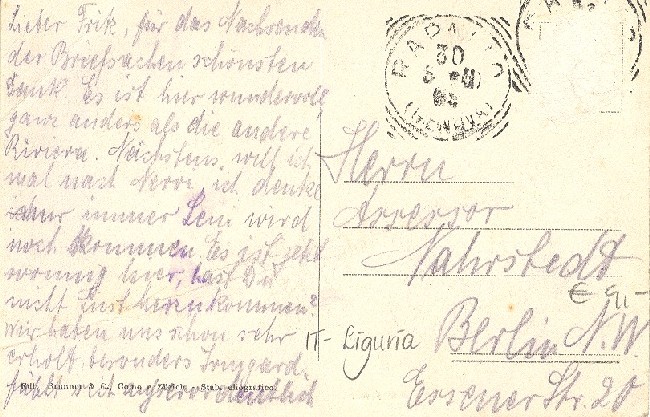 Lieber Fritz, für das Nachsenden
der Briefsachen schönsten
Dank. Es ist hier wundervoll
ganz anders als die andere
Riviera. Nächstens will ich
mal nach Nervi, ich denke
nur immer Leni wird
noch kommen. Es ist jetzt
wonnig hier, hast Du
nicht Lust herzukommen?
Wir haben uns schon sehr
erholt, besonders Irmgard
ausserordentlich
RAPALLO
30
(GENOVA)
Herrn
Assessor
Nahrstedt
€ 9,-
Berlin N.W.
Essener Str. 20
IT- Liguria
Brunner & C., Como e